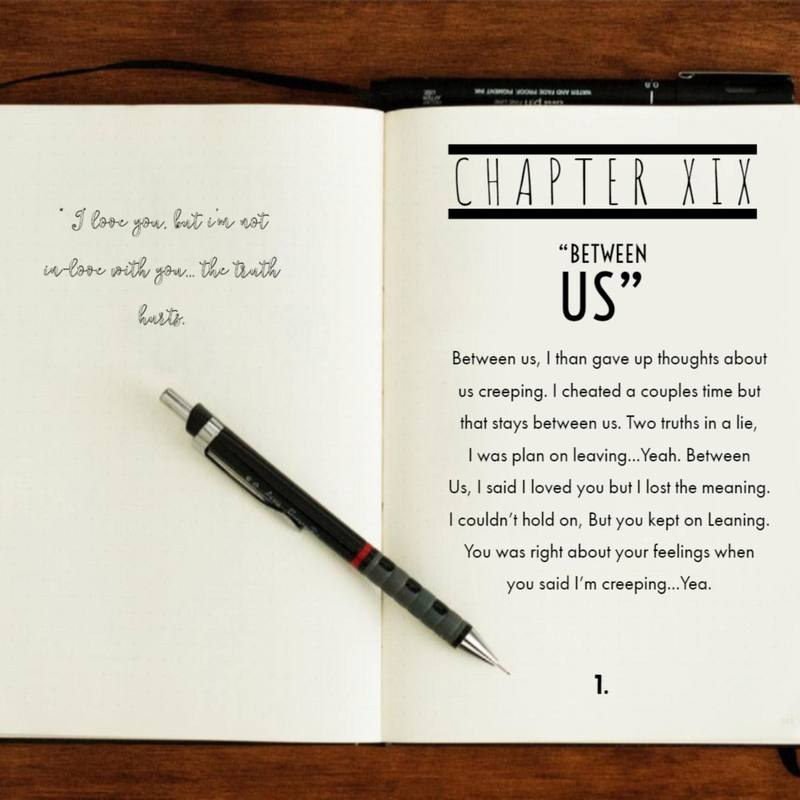 " I love you, but i'm not
in-love with you... the truth
hurts.
WATER AND FADE PROOF, PIGMENT INK
0.8
CHAPTER XIX
“BETWEEN
US”
Between us, I than gave up thoughts about
us creeping. I cheated a couples time but
that stays between us. Two truths in a lie,
I was plan on leaving...Yeah. Between
Us, I said I loved you but I lost the meaning.
I couldn’t hold on, But you kept on Leaning.
You was right about your feelings when
you said I’m creeping...Yea.
1.